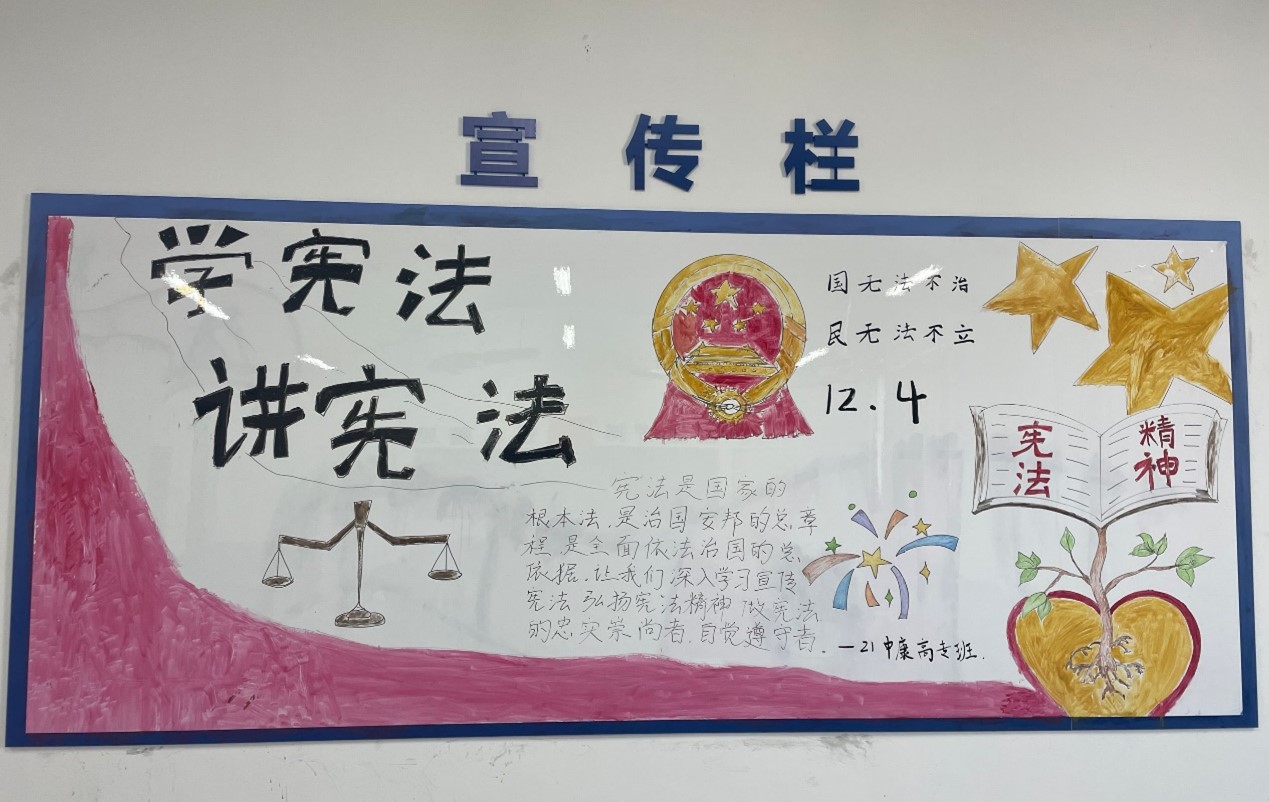 宣传栏
学宪法
讲宪法
国无法不治
民无法不立
12.4
宪法
精神
宪法是国家的
根本法,是治国安邦的总章
程,是全面依法治国的总
依据,让我们深入学习宣传
宪法,弘扬宪法精神,做宪法
的忠实崇尚者,自觉遵守者.
—21中康高专班.